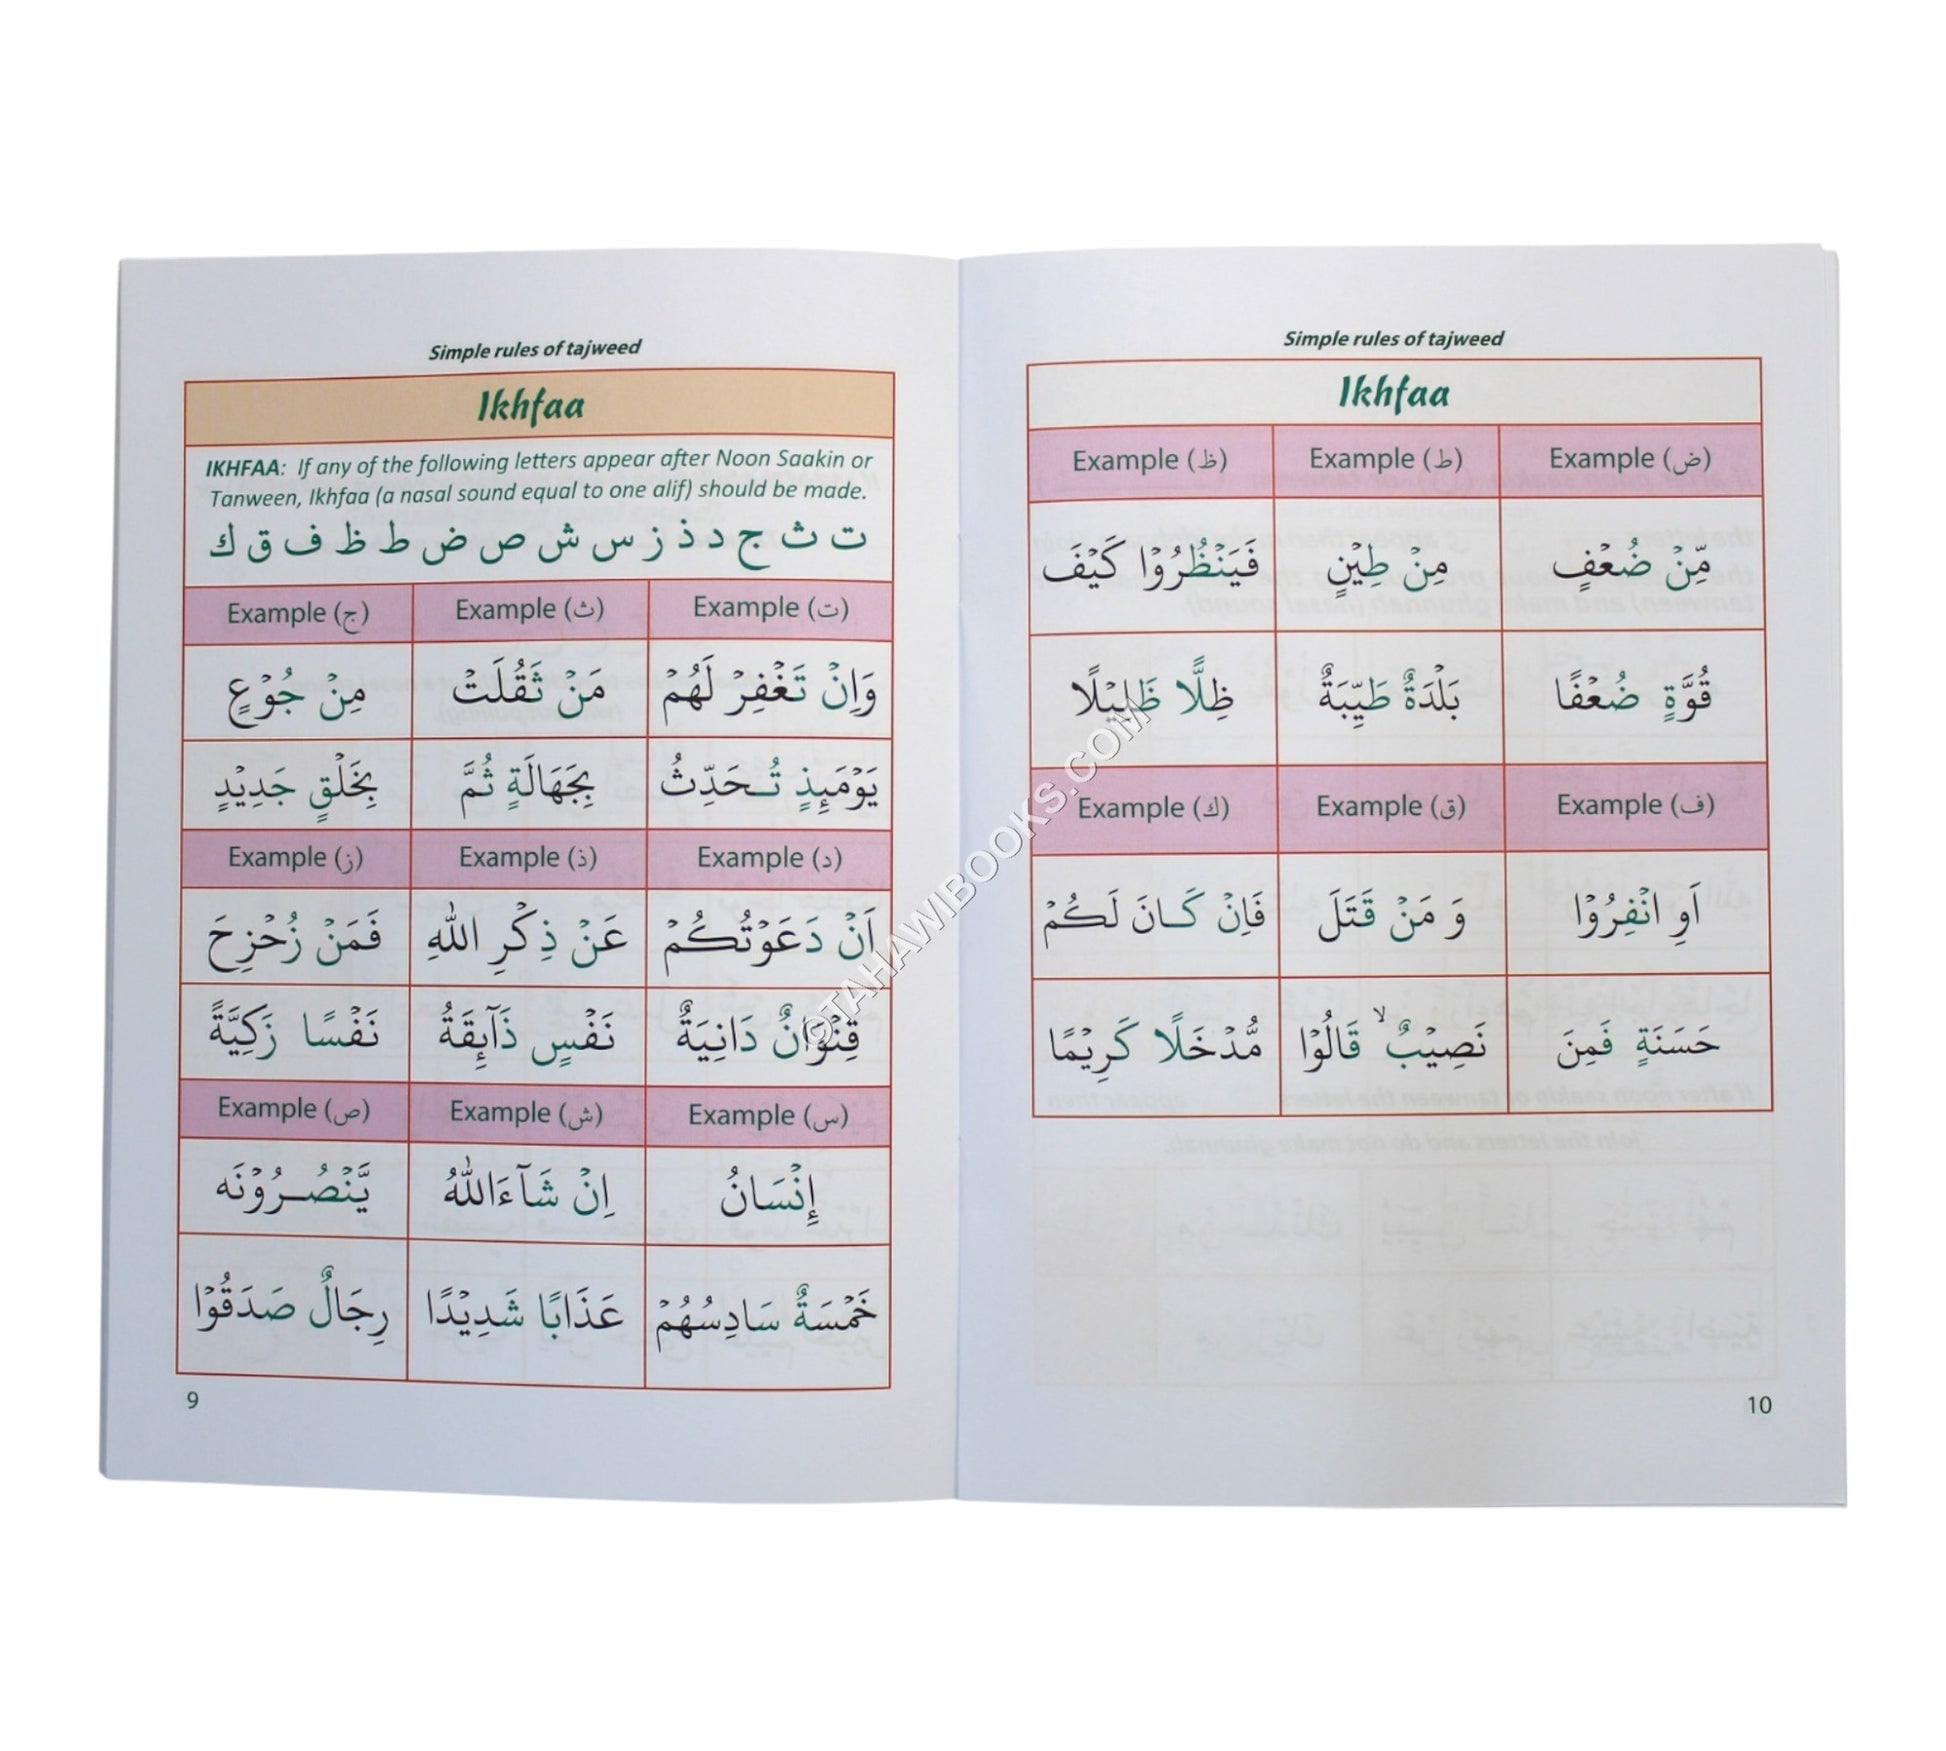 Simple rules of tajweed
Ikhfaa
IKHFAA: If any of the following letters appear after Noon Saakin or
Tanween, Ikhfaa (a nasal sound equal to one alif) should be made.
ت ث ج د ذ ز س ش ص ض ط ظ ف ق ك
Example (ت) Example (ث) Example (ج)
وَاِنْ تَغْفِرْ لَهُمْ مَنْ ثَقُلَتْ مِنْ جُوْعٍ
يَوْمَئِذٍ تُـحَدِّثُ بِجَهَالَةٍ ثُمَّ بِخَلْقٍ جَدِيْدٍ
Example (د) Example (ذ) Example (ز)
اَنْ دَعَوْتُكُمْ عَنْ ذِكْرِ اللهِ فَمَنْ زُحْزِحَ
قِنْوَانٌ دَانِيَةٌ نَفْسٍ ذَآئِقَةُ نَفْسًا زَكِيَّةً
Example (س) Example (ش) Example (ص)
إِنْسَانُ اِنْ شَآءَاللهُ يَّنْصُـرُوْنَه
خَمْسَةٌ سَادِسُهُمْ عَذَابًا شَدِيْدًا رِجَالٌ صَدَقُوْا
9
Simple rules of tajweed
Ikhfaa
Example (ض) Example (ط) Example (ظ)
مِّنْ ضُعْفٍ مِنْ طِيْنٍ فَيَنْظُرُوْا كَيْفَ
قُوَّةٍ ضُعْفًا بَلْدَةٌ طَيِّبَةٌ ظِلًّا ظَلِيْلًا
Example (ف) Example (ق) Example (ك)
اَوِ انْفِرُوْا وَ مَنْ قَتَلَ فَاِنْ كَـانَ لَكُمْ
حَسَنَةٍ فَمِنَ نَصِيْبٌ ۙ قَالُوْا مُّدْخَلًا كَرِيْمًا
10
©TAHAWIBOOKS.COM